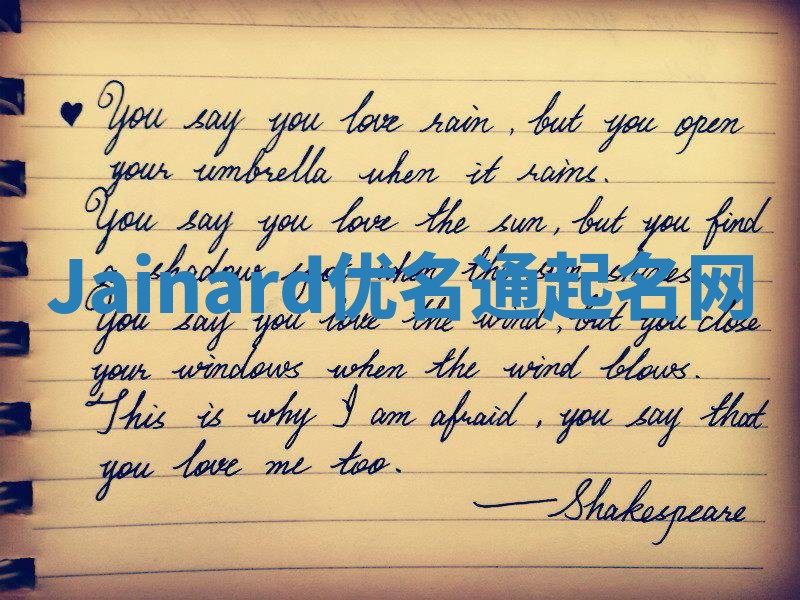 ♥ You say you love rain, but you open
your umbrella when it rains.
You say you love the sun, but you find
a shadow spot when the sun shines.
Jainard优名通起名网
You say you love the wind, but you close
your windows when the wind blows.
This is why I am afraid, you say that
you love me too.
—Shakespeare